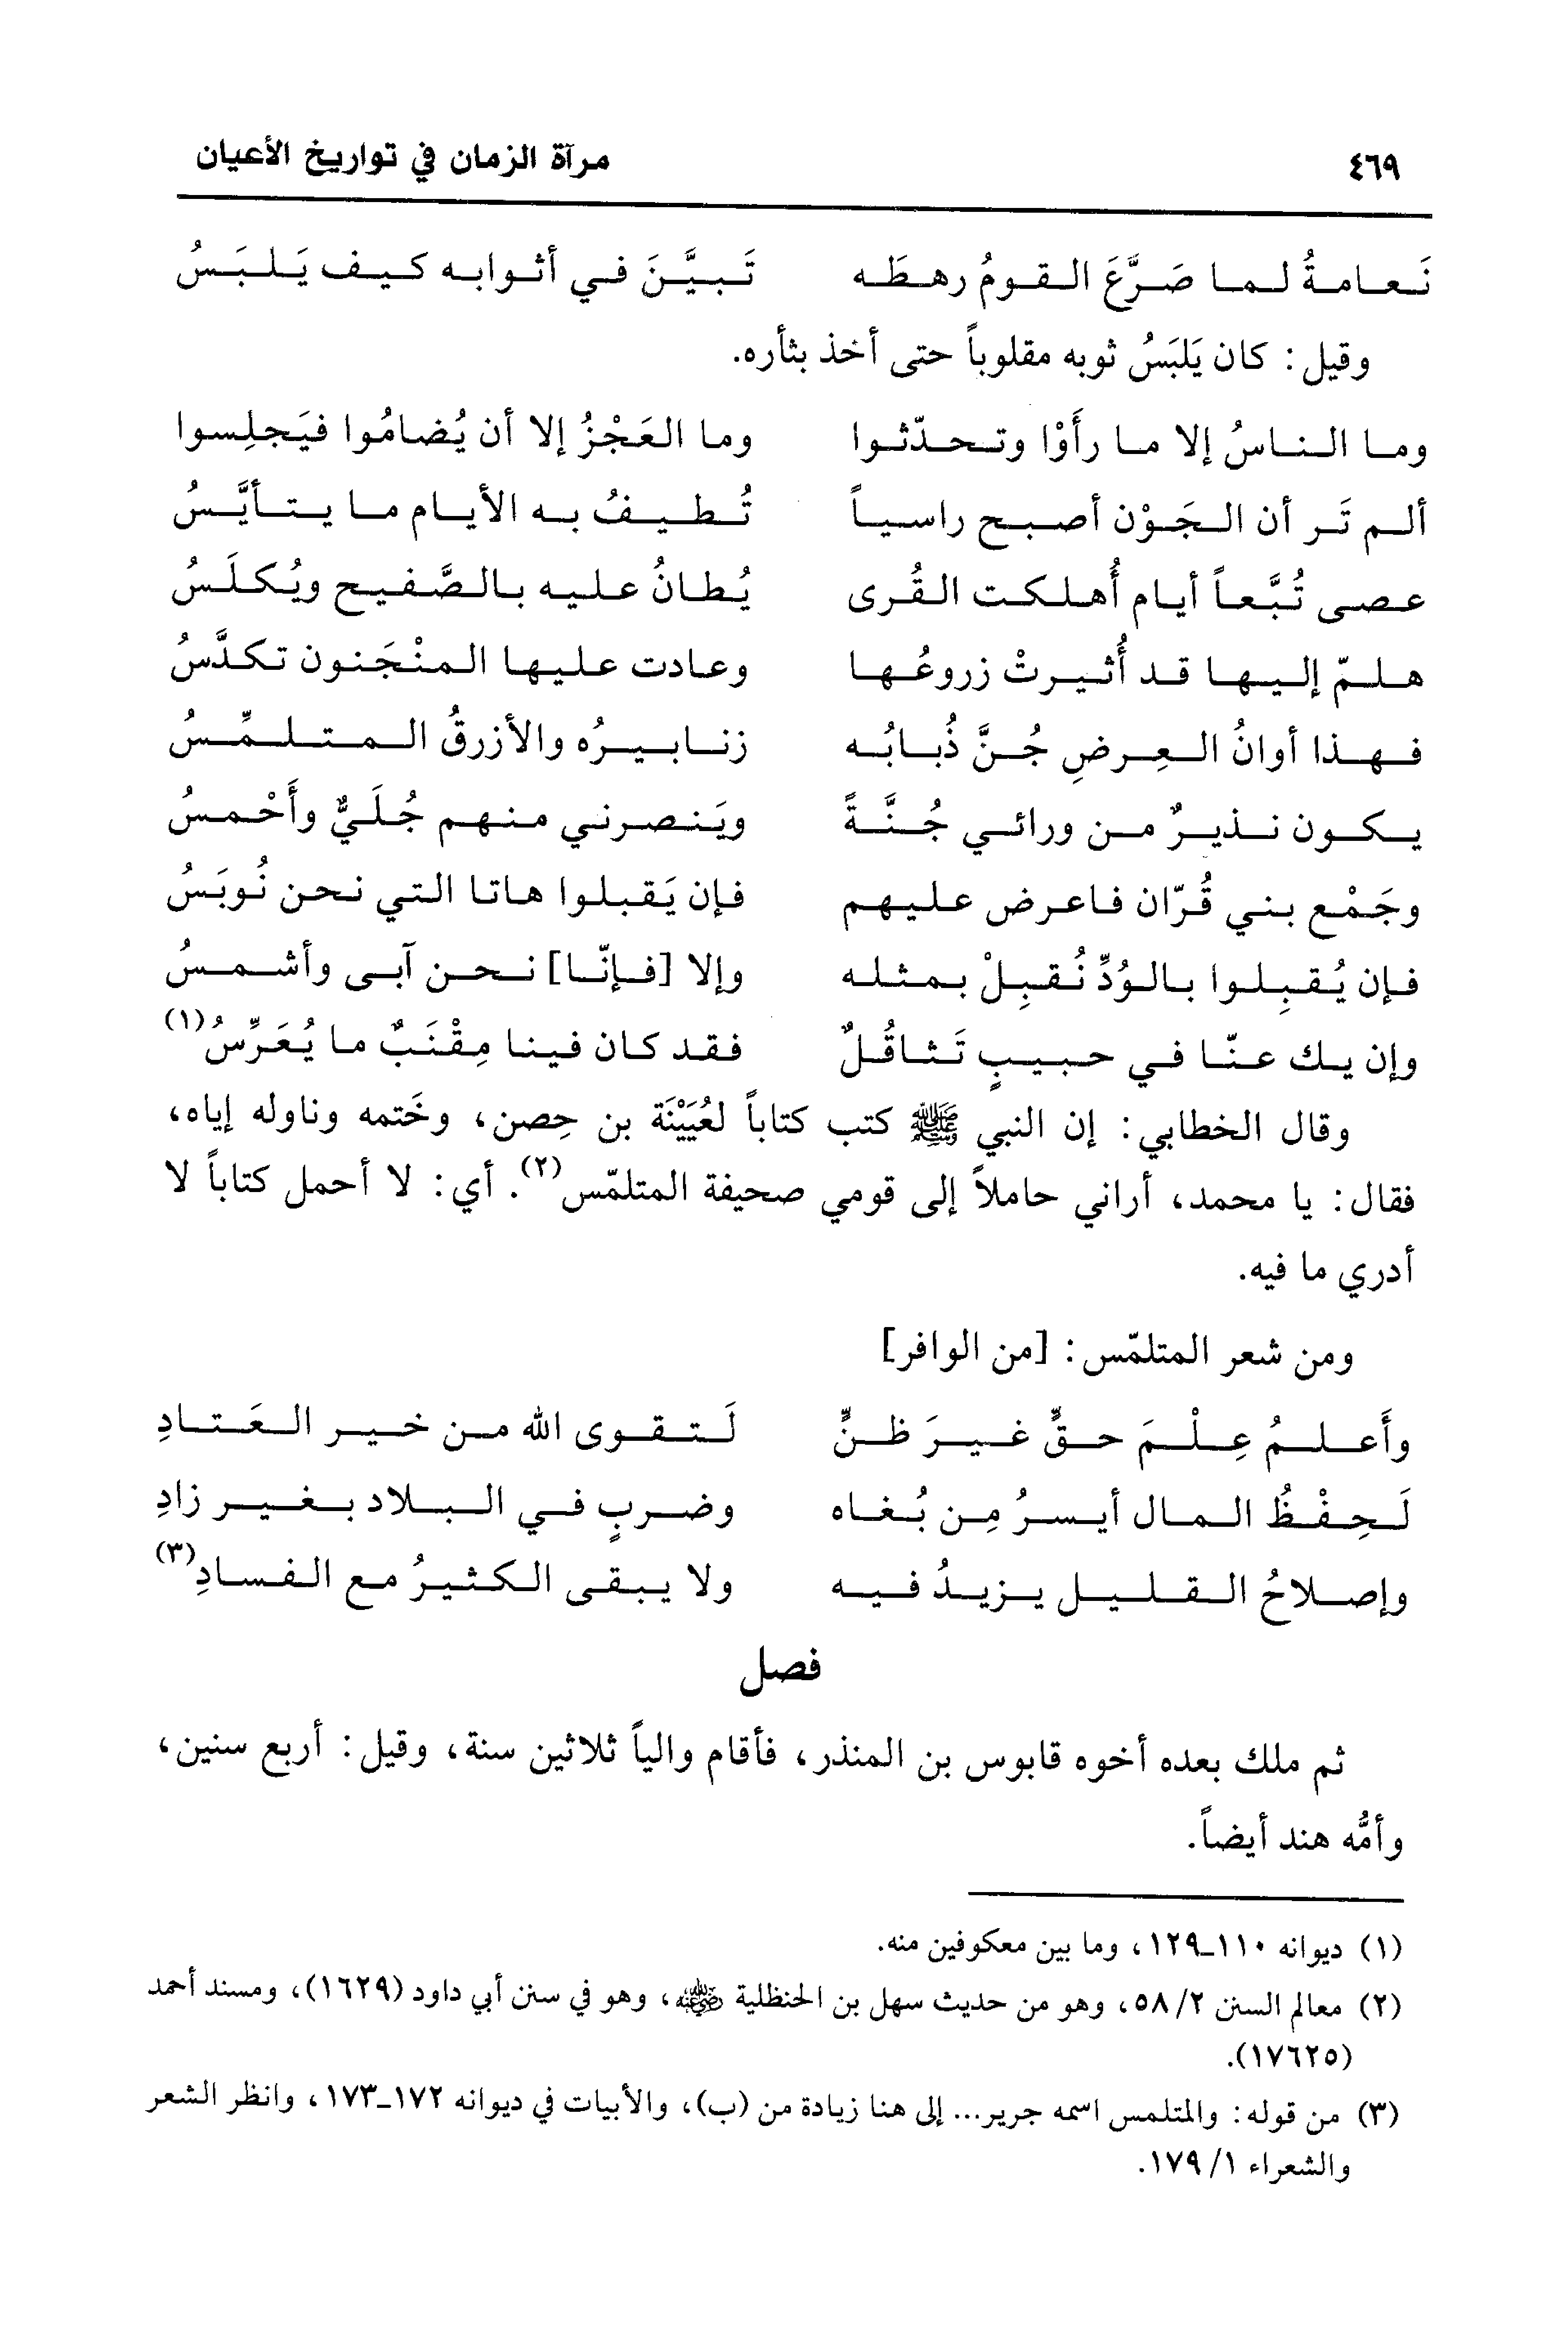 ٤٦٩ مرآة الزمان في تواريخ الأعيان
نَعامةُ لما صَرَّعَ القومُ رهطَه تَبيَّنَ في أثوابه كيف يَلبَسُ
وقيل: كان يَلبَسُ ثوبه مقلوباً حتى أخذ بثأره.
وما الناسُ إلا ما رأَوْا وتحدّثوا وما العَجْزُ إلا أن يُضامُوا فيَجلِسوا
ألم تَر أن الجَوْن أصبح راسياً تُطيفُ به الأيام ما يتأيَّسُ
عصى تُبَّعاً أيام أُهلكت القُرى يُطانُ عليه بالصَّفيح ويُكلَسُ
هلمّ إليها قد أُثيرتْ زروعُها وعادت عليها المنْجَنون تكدَّسُ
فهذا أوانُ العِرضِ جُنَّ ذُبابُه زنابيرُه والأزرقُ المتلمِّسُ
يكون نذيرٌ من ورائي جُنَّةً ويَنصرني منهم جُلَيٌّ وأَحْمسُ
وجَمْع بني قُرّان فاعرض عليهم فإن يَقبلوا هاتا التي نحن نُوبَسُ
فإن يُقبِلوا بالوُدِّ نُقبِلْ بمثله وإلا [فإنّا] نحن آبى وأشمسُ
وإن يك عنّا في حبيبٍ تَثاقُلٌ فقد كان فينا مِقْنَبٌ ما يُعَرِّسُ(١)
وقال الخطابي: إن النبي ﷺ كتب كتاباً لعُيَيْنَة بن حِصن، وخَتمه وناوله إياه،
فقال: يا محمد، أراني حاملاً إلى قومي صحيفة المتلمّس(٢). أي: لا أحمل كتاباً لا
أدري ما فيه.
ومن شعر المتلمّس: [من الوافر]
وأَعلمُ عِلْمَ حقٍّ غيرَ ظنٍّ لَتقوى الله من خير العَتادِ
لَحِفْظُ المال أيسرُ مِن بُغاه وضربٍ في البلاد بغير زادِ
وإصلاحُ القليل يزيدُ فيه ولا يبقى الكثيرُ مع الفسادِ(٣)
فصل
ثم ملك بعده أخوه قابوس بن المنذر، فأقام والياً ثلاثين سنة، وقيل: أربع سنين،
وأمُّه هند أيضاً.
(١) ديوانه ١١٠-١٢٩، وما بين معكوفين منه.
(٢) معالم السنن ٥٨/٢، وهو من حديث سهل بن الحنظلية رضي الله عنه، وهو في سنن أبي داود (١٦٢٩)، ومسند أحمد
(١٧٦٢٥).
(٣) من قوله: والمتلمس اسمه جرير... إلى هنا زيادة من (ب)، والأبيات في ديوانه ١٧٢-١٧٣، وانظر الشعر
والشعراء ١/ ١٧٩.